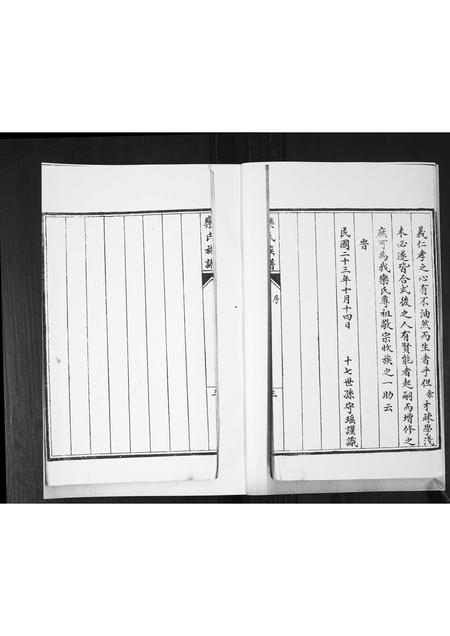 義仁孝之心有不油然而生者乎但余才疎學淺
未必遂皆合式後之人有賢能者起嗣而增修之
庶可為我欒氏尊祖敬宗收族之一助云
旹
民國二十三年十月十四日 十七世孫守瑤謹識
欒氏族譜
序
三
欒氏族譜
三